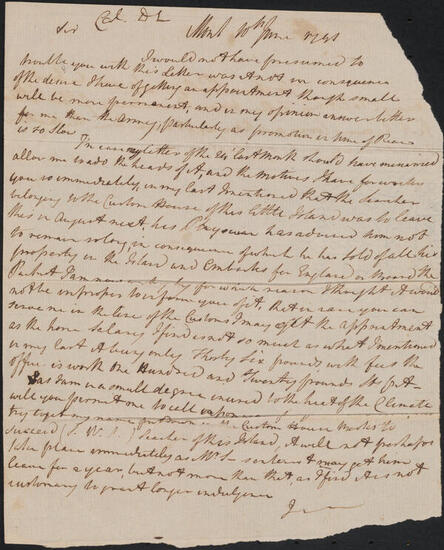 Col. D L
Sir Mont 10th June 1791
I would not have presumed to
trouble you with this Letter was it not in consequence
of the desire I have of getting an appointment though small
will be more permanent, and in my opinion answer better
for me than the army, particularly as promotion in time of Peace
is so slow
In case my letter of the last Month should have miscarried
allow me to add the heads of it, and the motives I have for writing
you so immediately, in my last I mentioned that the Searcher
belonging to the Custom House of this little Island was to leave
this in August next, his Physician has advised him not
to remain so long, in consequence of which he has sold off all his
property in the Island and Embarks for England on board the
Packet for which reason I thought it would
not be improper to inform you of it, that in case you can
serve me in the line of the Customs I may get the appointment
as the home Salary I find is not so much as what I mentioned
in my last it being only Thirty Six pounds, with fees the
office is worth one Hundred and Twenty pounds St.
as I am in a small degree inured to the heat of the Climate
will you permit me to call upon
try Custom House
Succeed Searcher of this Island, it will not perhaps
take place immediately as Mr S may get him
leave for a year, but not more than that as I find it is not
customary to grant longer indulgence